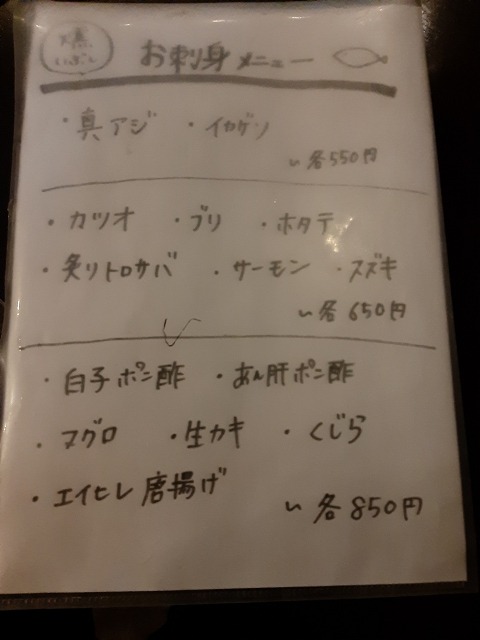 燻
いぶし
お刺身メニュー
・真アジ ・イカゲソ
〜各550円
・カツオ ・ブリ ・ホタテ
・炙りトロサバ ・サーモン ・スズキ
〜各650円
・白子ポン酢 ・あん肝ポン酢
・マグロ ・生カキ ・くじら
・エイヒレ唐揚げ
〜各850円